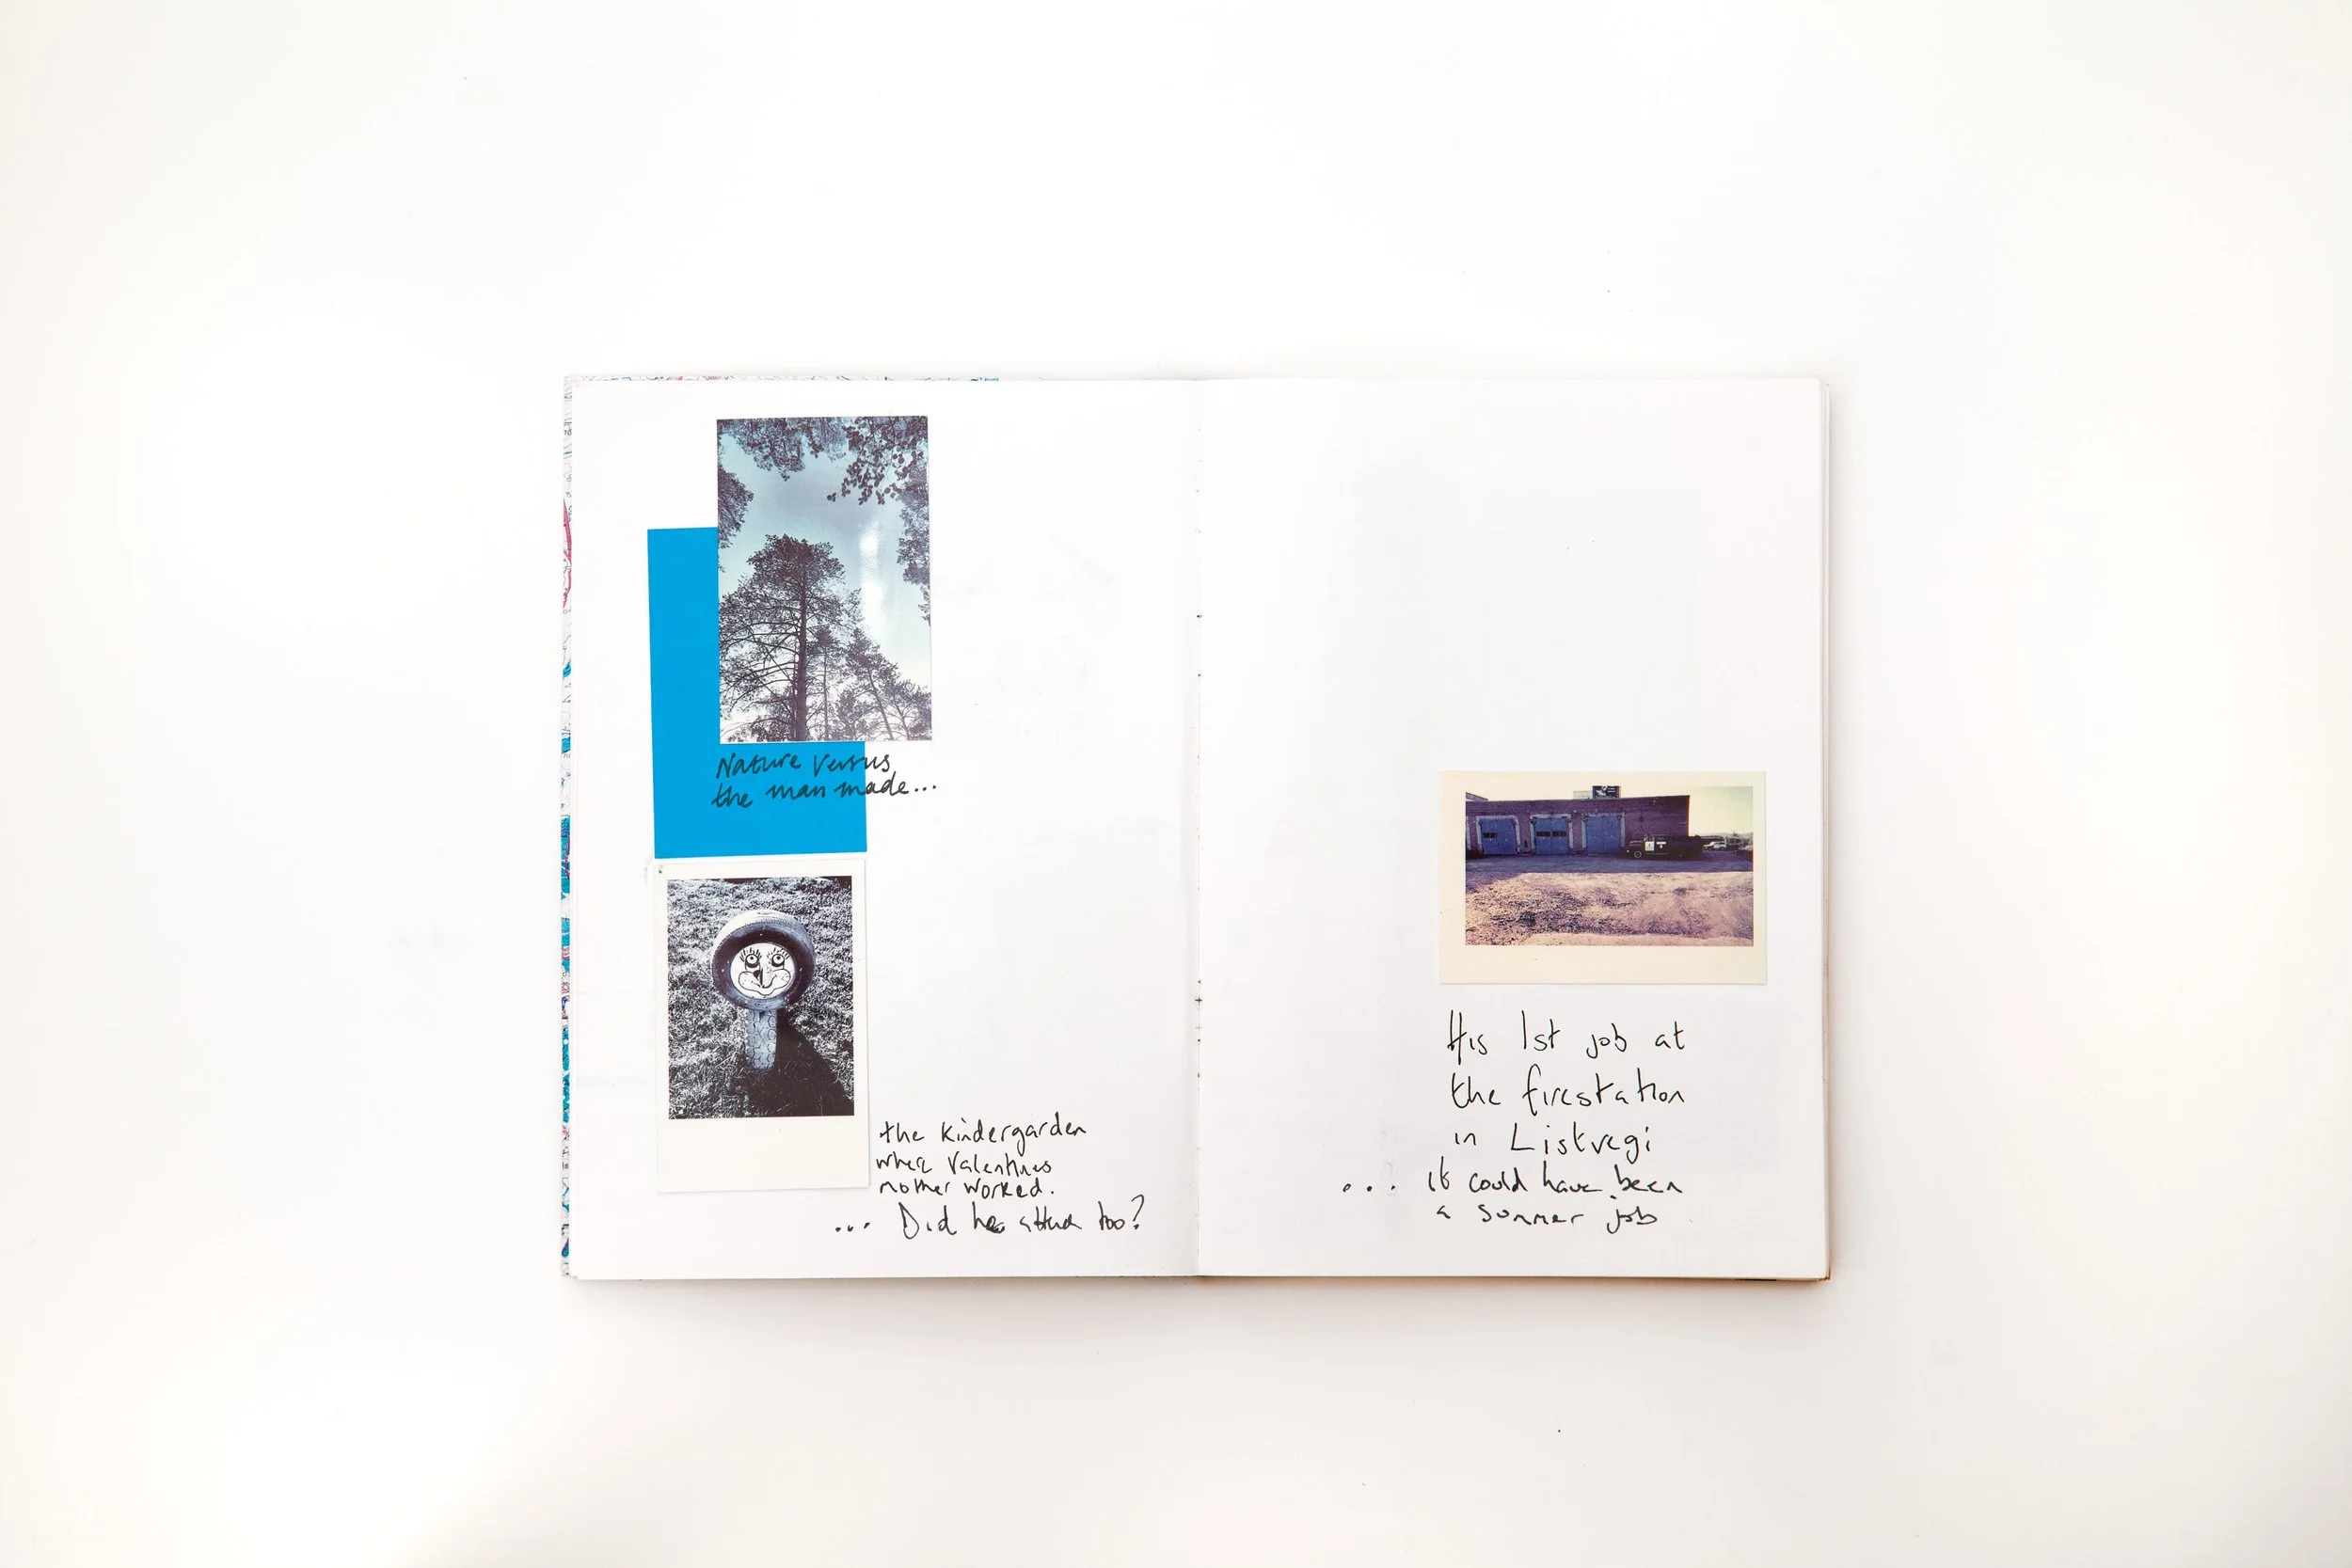 Nature versus
the man made...
the Kindergarden
where Valentines
mother worked.
... Did he attend too?
His 1st job at
the firestation
in Listvegi
... it could have been
a summer job